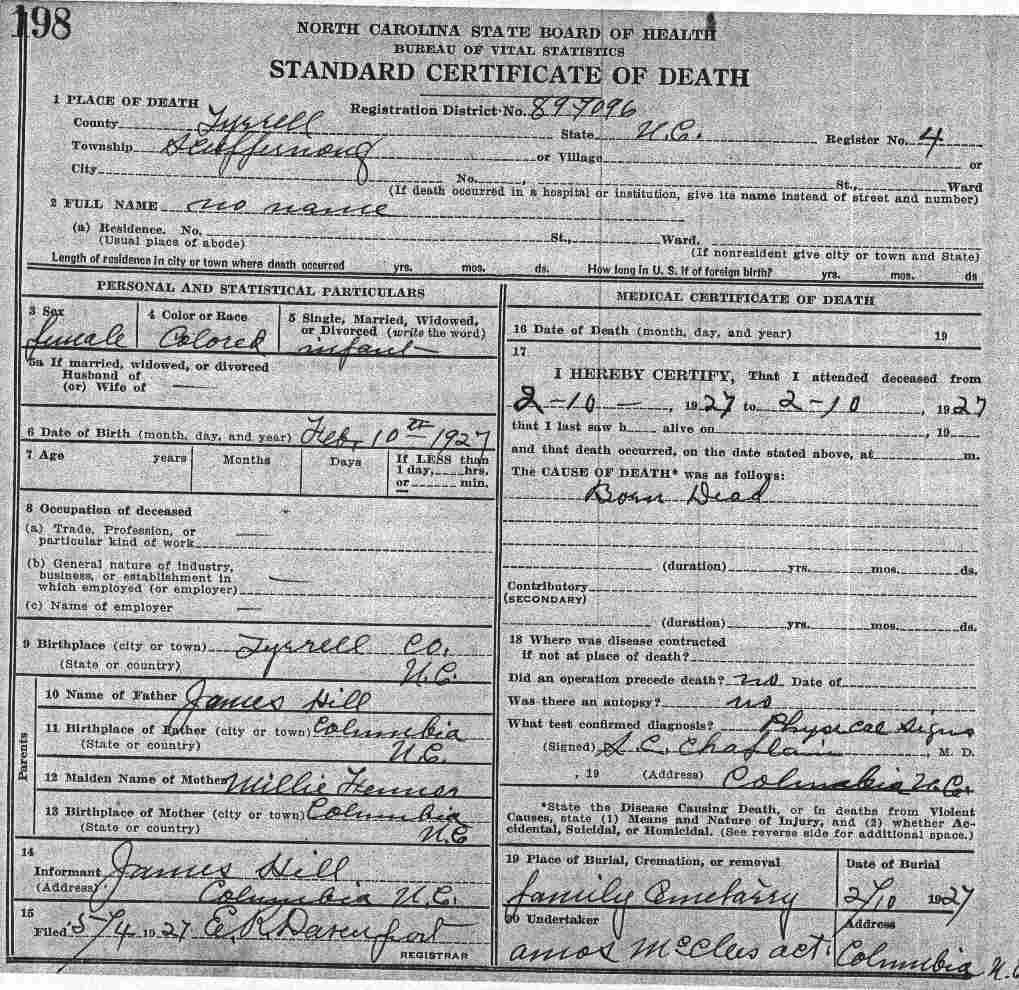 198
NORTH CAROLINA STATE BOARD OF HEALTH
BUREAU OF VITAL STATISTICS
STANDARD CERTIFICATE OF DEATH
1 PLACE OF DEATH
Registration District No. 897096
County Tyrrell State N.C. Register No. 4
Township Scuppernong or Village or
City No. , St., Ward
(If death occurred in a hospital or institution, give its name instead of street and number)
2 FULL NAME no name
(a) Residence. No. St., Ward.
(Usual place of abode) (If nonresident give city or town and State)
Length of residence in city or town where death occurred yrs. mos. ds. How long in U. S. if of foreign birth? yrs. mos. ds
PERSONAL AND STATISTICAL PARTICULARS
3 Sex 4 Color or Race 5 Single, Married, Widowed,
or Divorced (write the word)
female Colored infant
5a If married, widowed, or divorced
Husband of
(or) Wife of —
6 Date of Birth (month, day, and year) Feb, 10th - 1927
7 Age years Months Days If LESS than
1 day, hrs.
or min.
8 Occupation of deceased
(a) Trade, Profession, or
particular kind of work —
(b) General nature of industry,
business, or establishment in
which employed (or employer) —
(c) Name of employer —
9 Birthplace (city or town) Tyrrell Co.
(State or country) N.C.
Parents
10 Name of Father James Hill
11 Birthplace of Father (city or town) Columbia
(State or country) N.C.
12 Maiden Name of Mother Millie Fenner
13 Birthplace of Mother (city or town) Columbia
(State or country) N.C
14
Informant James Hill
(Address) Columbia N.C.
15
Filed 5/4 1927 E. K. Davenport
REGISTRAR
MEDICAL CERTIFICATE OF DEATH
16 Date of Death (month, day, and year) 19
17
I HEREBY CERTIFY, That I attended deceased from
2-10 — , 1927 to 2-10 , 1927
that I last saw h alive on , 19
and that death occurred, on the date stated above, at m.
The CAUSE OF DEATH* was as follows:
Born Dead
(duration) yrs. mos. ds.
Contributory
(SECONDARY)
(duration) yrs. mos. ds.
18 Where was disease contracted
if not at place of death?
Did an operation precede death? no Date of
Was there an autopsy? no
What test confirmed diagnosis? Physical Signs
(Signed) S. C. Chaplain , M. D.
, 19 (Address) Columbia N.C.
*State the Disease Causing Death, or in deaths from Violent
Causes, state (1) Means and Nature of Injury, and (2) whether Ac-
cidental, Suicidal, or Homicidal. (See reverse side for additional space.)
19 Place of Burial, Cremation, or removal Date of Burial
family Cemetarry 2/10 1927
20 Undertaker Address
amos McClees act. Columbia N.C